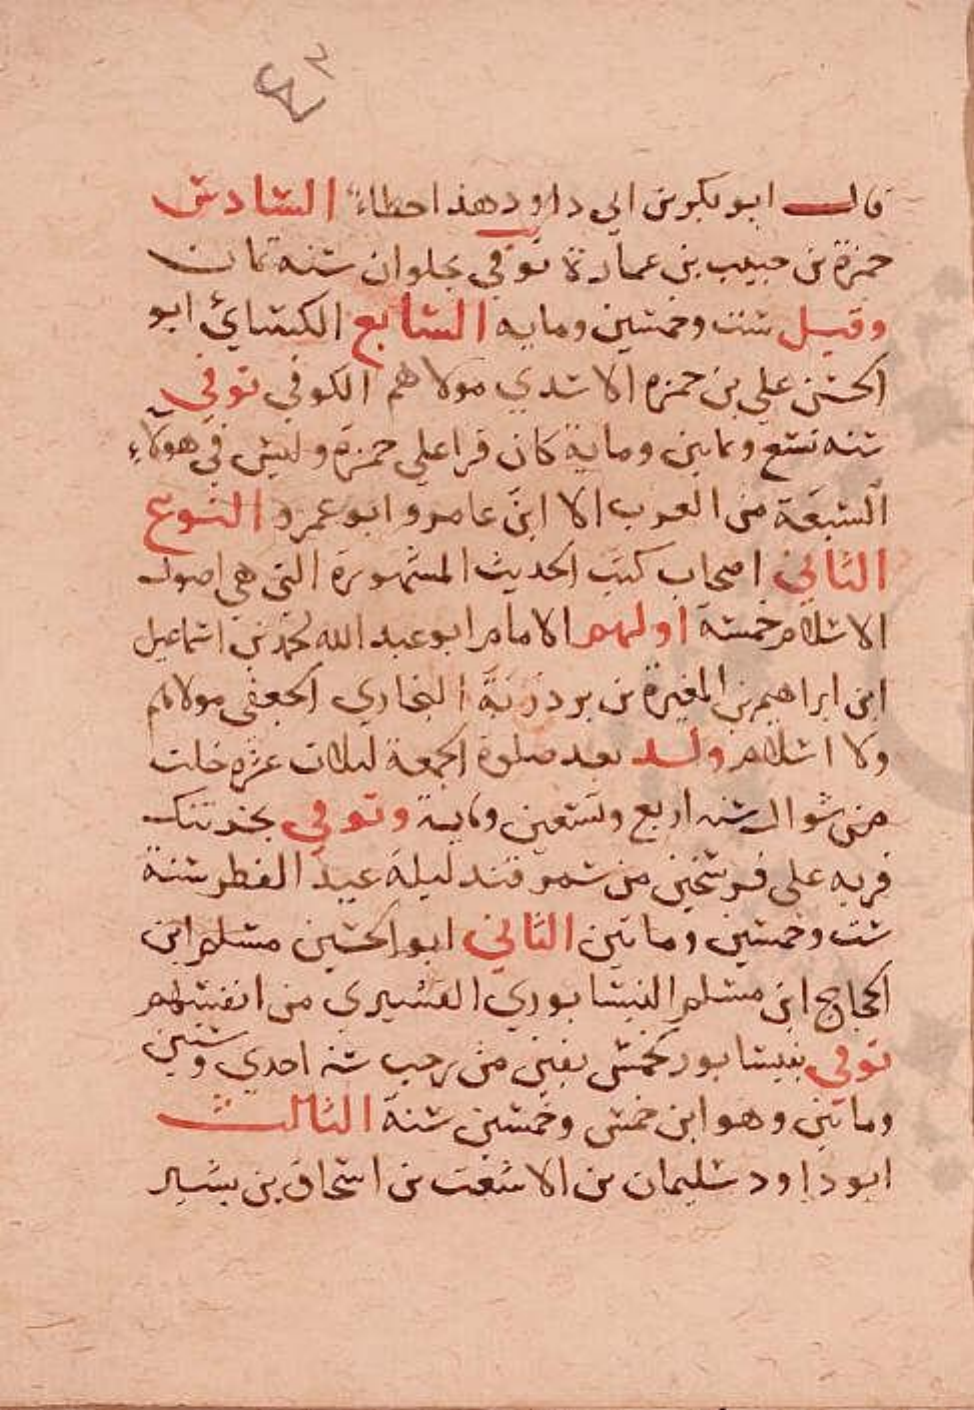 قال ابو بكر بن ابي داود هذا خطاء السادس
حمزة بن حبيب بن عمارة توفي بحلوان سنه ثمان
وقيل ست وخمسين ومايه السابع الكسائي ابو
الحسن علي بن حمزه الاسدي مولاهم الكوفي توفي
سنه تسع وثمانين وماية كان قرا على حمزة وليس في هولاء
السبعة من العرب الا ابن عامر وابو عمرو النوع
الثاني اصحاب كتب الحديث المشهورة التي هي اصول
الاسلام خمسة اولهم الامام ابو عبد الله محمد بن اسماعيل
ابن ابراهيم بن المغيرة بن بردزبة البخاري الجعفي مولاهم
ولا اسلام ولد بعد صلوة الجمعة لثلاث عشره خلت
من شوال سنه اربع وتسعين وماية وتوفي بخرتنك
قريه على فرسخين من سمرقند ليلة عيد الفطر سنة
ست وخمسين وماتين الثاني ابو الحسين مسلم ابن
الحجاج ابن مسلم النيسابوري القشيري من انفسهم
توفي بنيسابور لخمس بقين من رجب سنه احدي وستين
وماتين وهو ابن خمس وخمسين سنة الثالث
ابو داود سليمان بن الاشعث بن اسحاق بن بشير